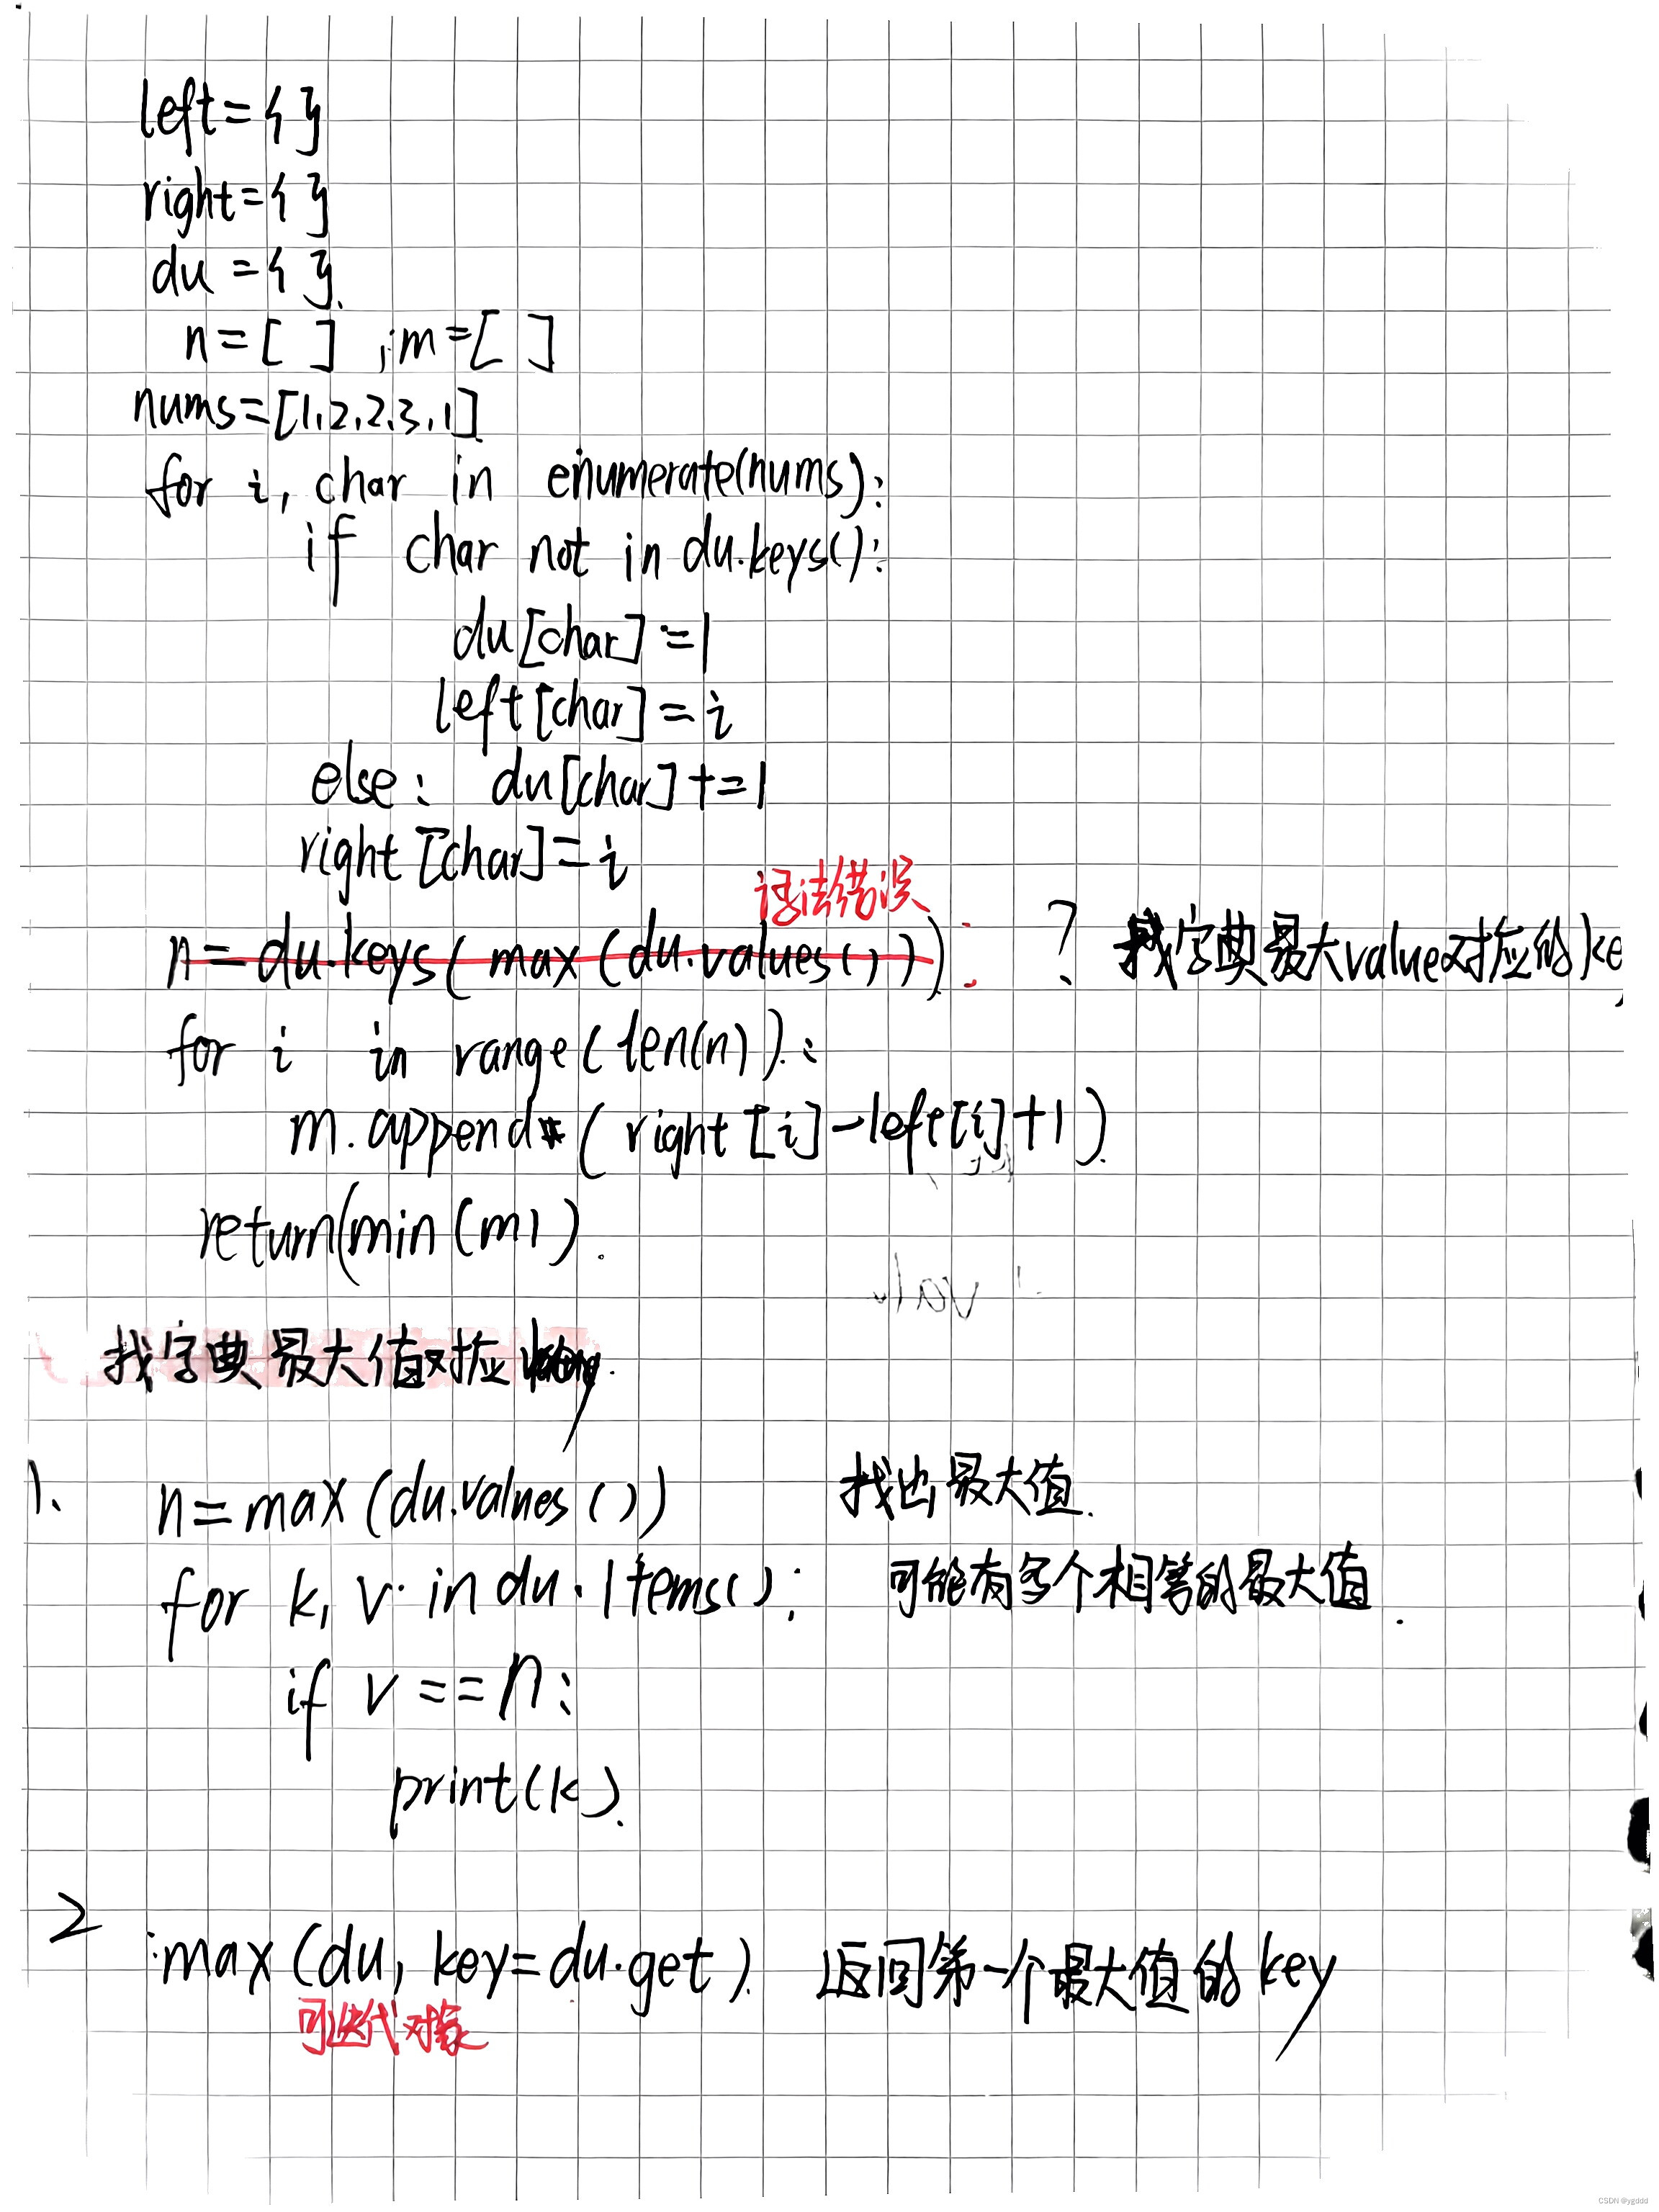 left={}
right={}
du={}
n=[ ] ; m=[ ]
nums=[1,2,2,3,1]
for i, char in enumerate(nums):
if char not in du.keys():
du[char]=1
left[char]=i
else: du[char]+=1
right[char]=i
语法错误
n=du.keys(max(du.values())): ? 找字典最大value对应的ke
for i in range(len(n)):
m.append(right[i]-left[i]+1)
return(min(m)).
找字典最大值对应
1. n=max(du.values()) 找出最大值.
for k, v in du.items(): 可能有多个相等的最大值.
if v==n:
print(k).
2 max(du, key=du.get). 返回第一个最大值的key
可迭代对象
CSDN @ygddd